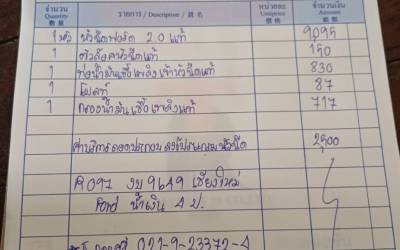 จำนวน รายการ / Description / 姓名 หน่วยละ จำนวนเงิน
Quantity Unitprice Amount
數量 價格 銀額
1 หัว หัวฉีดฟอร์ด 2.0 แท้ 9095
1 ตัวล็อคหัวฉีดแท้ 150
1 ท่อน้ำมันเชื้อเพลิงเข้าหัวฉีดแท้ 830
1 โบลท์ 87
1 กรองน้ำมันเชื้อเพลิงแท้ 717
ค่าบริการถอดประกอบ 2500
9649 เชียงใหม่
Ford น้ำเงิน 4 ป.
021-9-23372-4